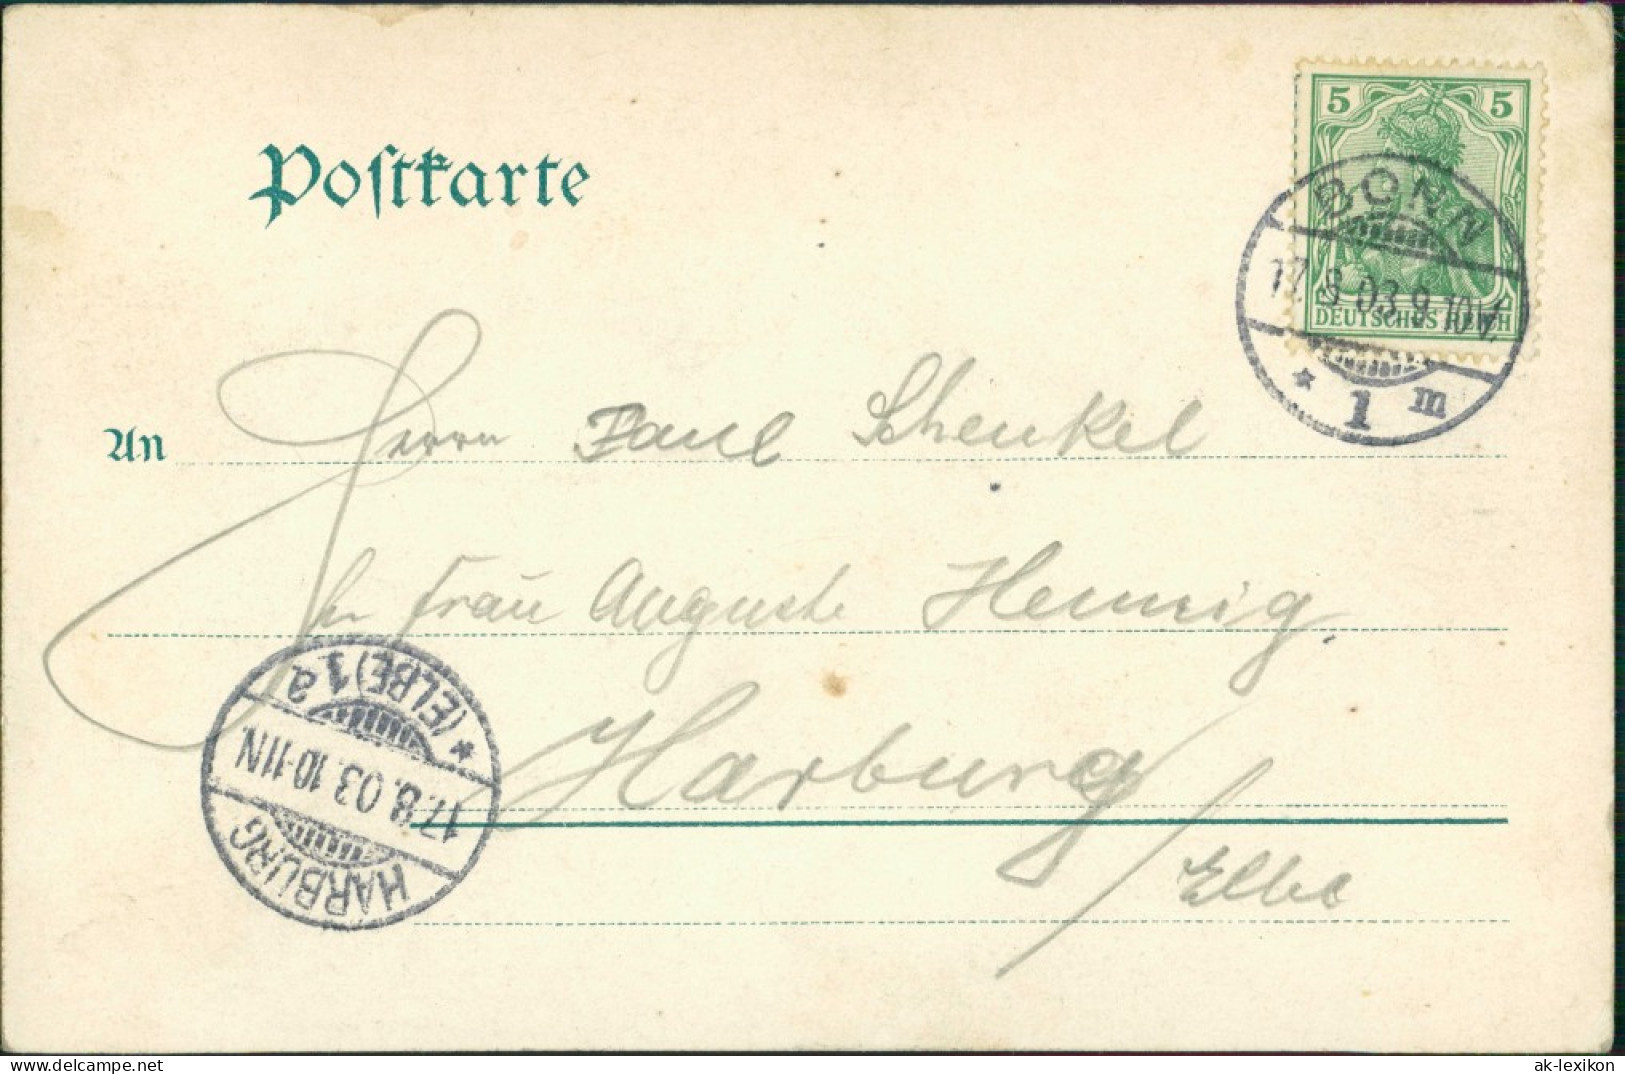 Postkarte
5 5
DEUTSCHES REICH
BONN
17.8.03.9-10V.
* 1 m
An Herrn Paul Schenkel
Frau Auguste Hennig,
Harburg
/Elbe
HARBURG
17.8.03.10-11N.
* (ELBE) 1a
www.delcampe.net
ak-lexikon